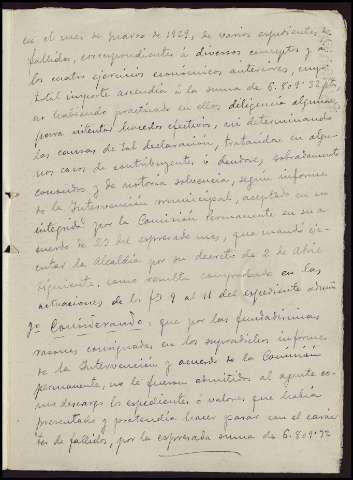 en el mes de Marzo de 1929, de varios expedientes de
fallidos, correspondientes á diversos conceptos y a
los cuatro ejercicios económicos anteriores, cuyo
total importe ascendía á la suma de 6.809'32 pts,
no habiendo practicado en ellos diligencia alguna
para intentar hacerlos efectivos, ni determinando
las causas de tal declaración, tratandose en algu-
nos casos de contribuyentes ó deudores, sobradamente
conocidos y de notoria solvencia, según informe
de la Intervención municipal, aceptado en su
integridad por la Comisión Permanente en su a-
cuerdo de 23 del expresado mes, que mandó eje-
cutar la Alcaldía por su decreto de 2 de Abril
siguiente, como resulta comprobado en las
actuaciones de los fº 9 al 11 del expediente
9º Considerando: que por las fundadísimas
razones consignadas en los supradichos informe
de la Intervención y acuerdo de la Comisión
permanente, no le fueron admitidos al agente co-
mo descargo los expedientes ó valores que había
presentado y pretendía hacer pasar con el carác-
ter de fallidos, por la expresada suma de 6.809'32